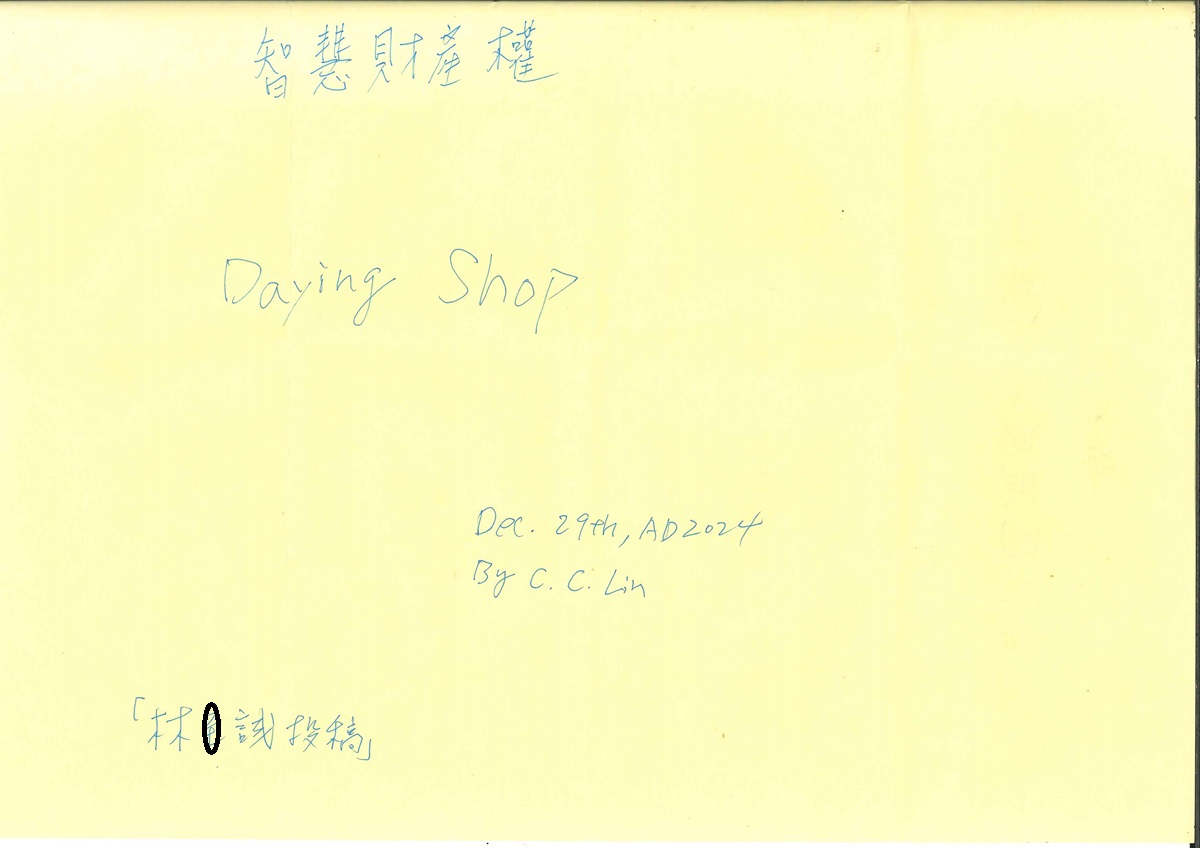 智慧財產權
Daying Shop
Dec. 29th, AD2024
By C. C. Lin
「林 誠投稿」